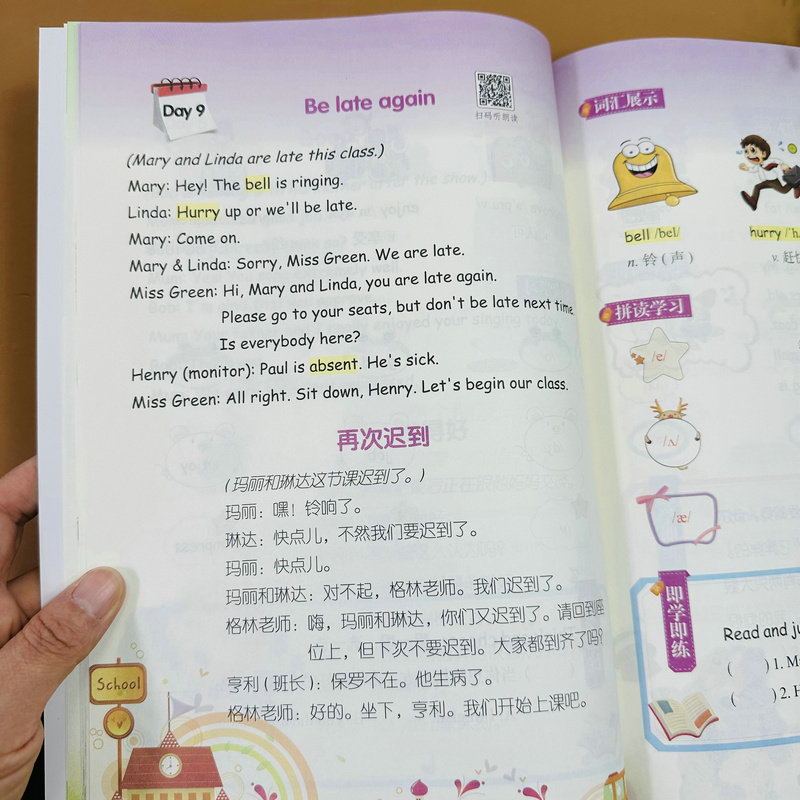 Day 9
Be late again
扫码听朗读
(Mary and Linda are late this class.)
Mary: Hey! The bell is ringing.
Linda: Hurry up or we'll be late.
Mary: Come on.
Mary & Linda: Sorry, Miss Green. We are late.
Miss Green: Hi, Mary and Linda, you are late again.
Please go to your seats, but don't be late next time.
Is everybody here?
Henry (monitor): Paul is absent. He's sick.
Miss Green: All right. Sit down, Henry. Let's begin our class.
再次迟到
(玛丽和琳达这节课迟到了。)
玛丽：嘿！铃响了。
琳达：快点儿，不然我们要迟到了。
玛丽：快点儿。
玛丽和琳达：对不起，格林老师。我们迟到了。
格林老师：嗨，玛丽和琳达，你们又迟到了。请回到座
位上，但下次不要迟到。大家都到齐了吗？
亨利（班长）：保罗不在。他生病了。
格林老师：好的。坐下，亨利。我们开始上课吧。
School
词汇展示
bell /bel/
n. 铃（声）
hurry
v.
拼读学习
/e/
/ʌ/
/æ/
即学即练
Read and
( ) 1.
( ) 2.